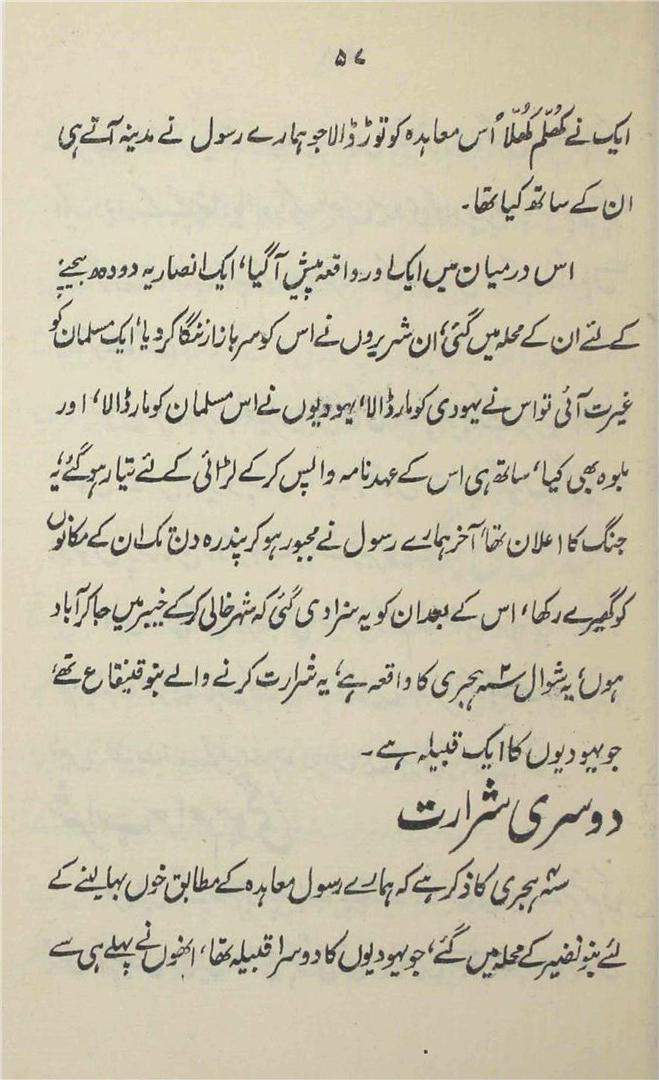 ۵۷
ایک نے کُھلّم کُھلّا اُس معاہدہ کو توڑ ڈالا جو ہمارے رسول نے مدینہ آتے ہی
ان کے ساتھ کیا تھا۔
اس درمیان میں ایک اور واقعہ پیش آ گیا، ایک انصاریہ دودھ بیچنے
کے لئے ان کے محلہ میں گئی، ان شریروں نے اس کو سر بازار ننگا کر دیا، ایک مسلمان کو
غیرت آئی تو اس نے یہودی کو مار ڈالا، یہودیوں نے اس مسلمان کو مار ڈالا، اور
بلوہ بھی کیا، ساتھ ہی اس کے عہدنامہ واپس کر کے لڑائی کے لئے تیار ہو گئے، یہ
جنگ کا اعلان تھا، آخر ہمارے رسول نے مجبور ہو کر پندرہ دن تک ان کے مکانوں
کو گھیرے رکھا، اس کے بعد ان کو یہ سزا دی گئی کہ شہر خالی کر کے خیبر میں جا کر آباد
ہوں، یہ شوال ۲ سنہ ہجری کا واقعہ ہے، یہ شرارت کرنے والے بنو قینقاع تھے،
جو یہودیوں کا ایک قبیلہ ہے۔
دوسری شرارت
سنہ ۴ ہجری کا ذکر ہے کہ ہمارے رسول معاہدہ کے مطابق خوں بہا لینے کے
لئے بنو نضیر کے محلہ میں گئے، جو یہودیوں کا دوسرا قبیلہ تھا، انھوں نے پہلے ہی سے